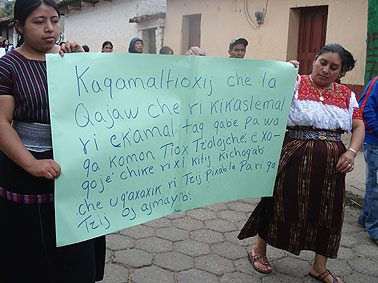 Kaqamaltioxij che la
Qajaw che ri kikaslemal
ri ekamal taq qabe pa wa
qa komon Tiox Tzolojche. c xo-
qoje' chike rixi kitij kichoqab'
che uq'axaxik ri Tzij Pixab la Pa ri qa
Tzij oj ajmayib.